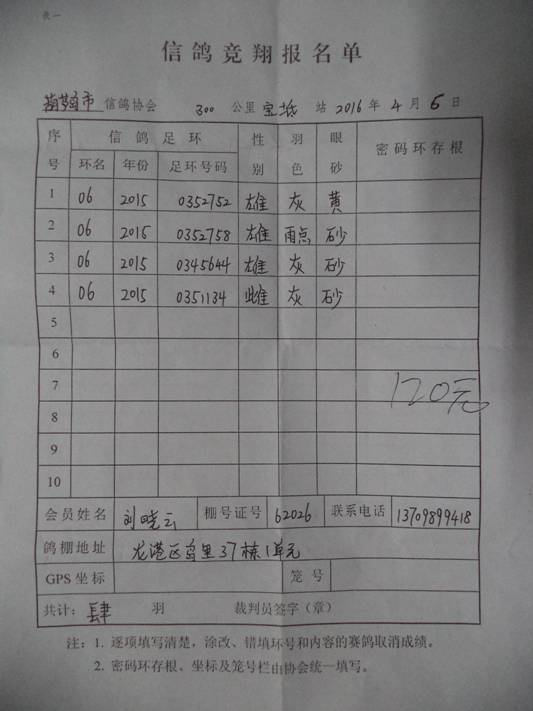 表一
信鸽竞翔报名单
葫芦岛市 信鸽协会 300 公里 宝坻 站 2016 年 4 月 6 日
序号 信鸽足环 性别 羽色 眼砂 密码环存根
环名 年份 足环号码
1 06 2015 0352752 雄 灰 黄
2 06 2015 0352758 雄 雨点 砂
3 06 2015 0345644 雄 灰 砂
4 06 2015 0351134 雌 灰 砂
5
6
7 120元
8
9
10
会员姓名 刘晓云 棚号证号 62026 联系电话 13709899418
鸽棚地址 龙港区 里37栋1单元
GPS坐标 笼号
共计: 肆 羽 裁判员签字(章)
注: 1. 逐项填写清楚,涂改、错填环号和内容的赛鸽取消成绩。
2. 密码环存根、坐标及笼号栏由协会统一填写。